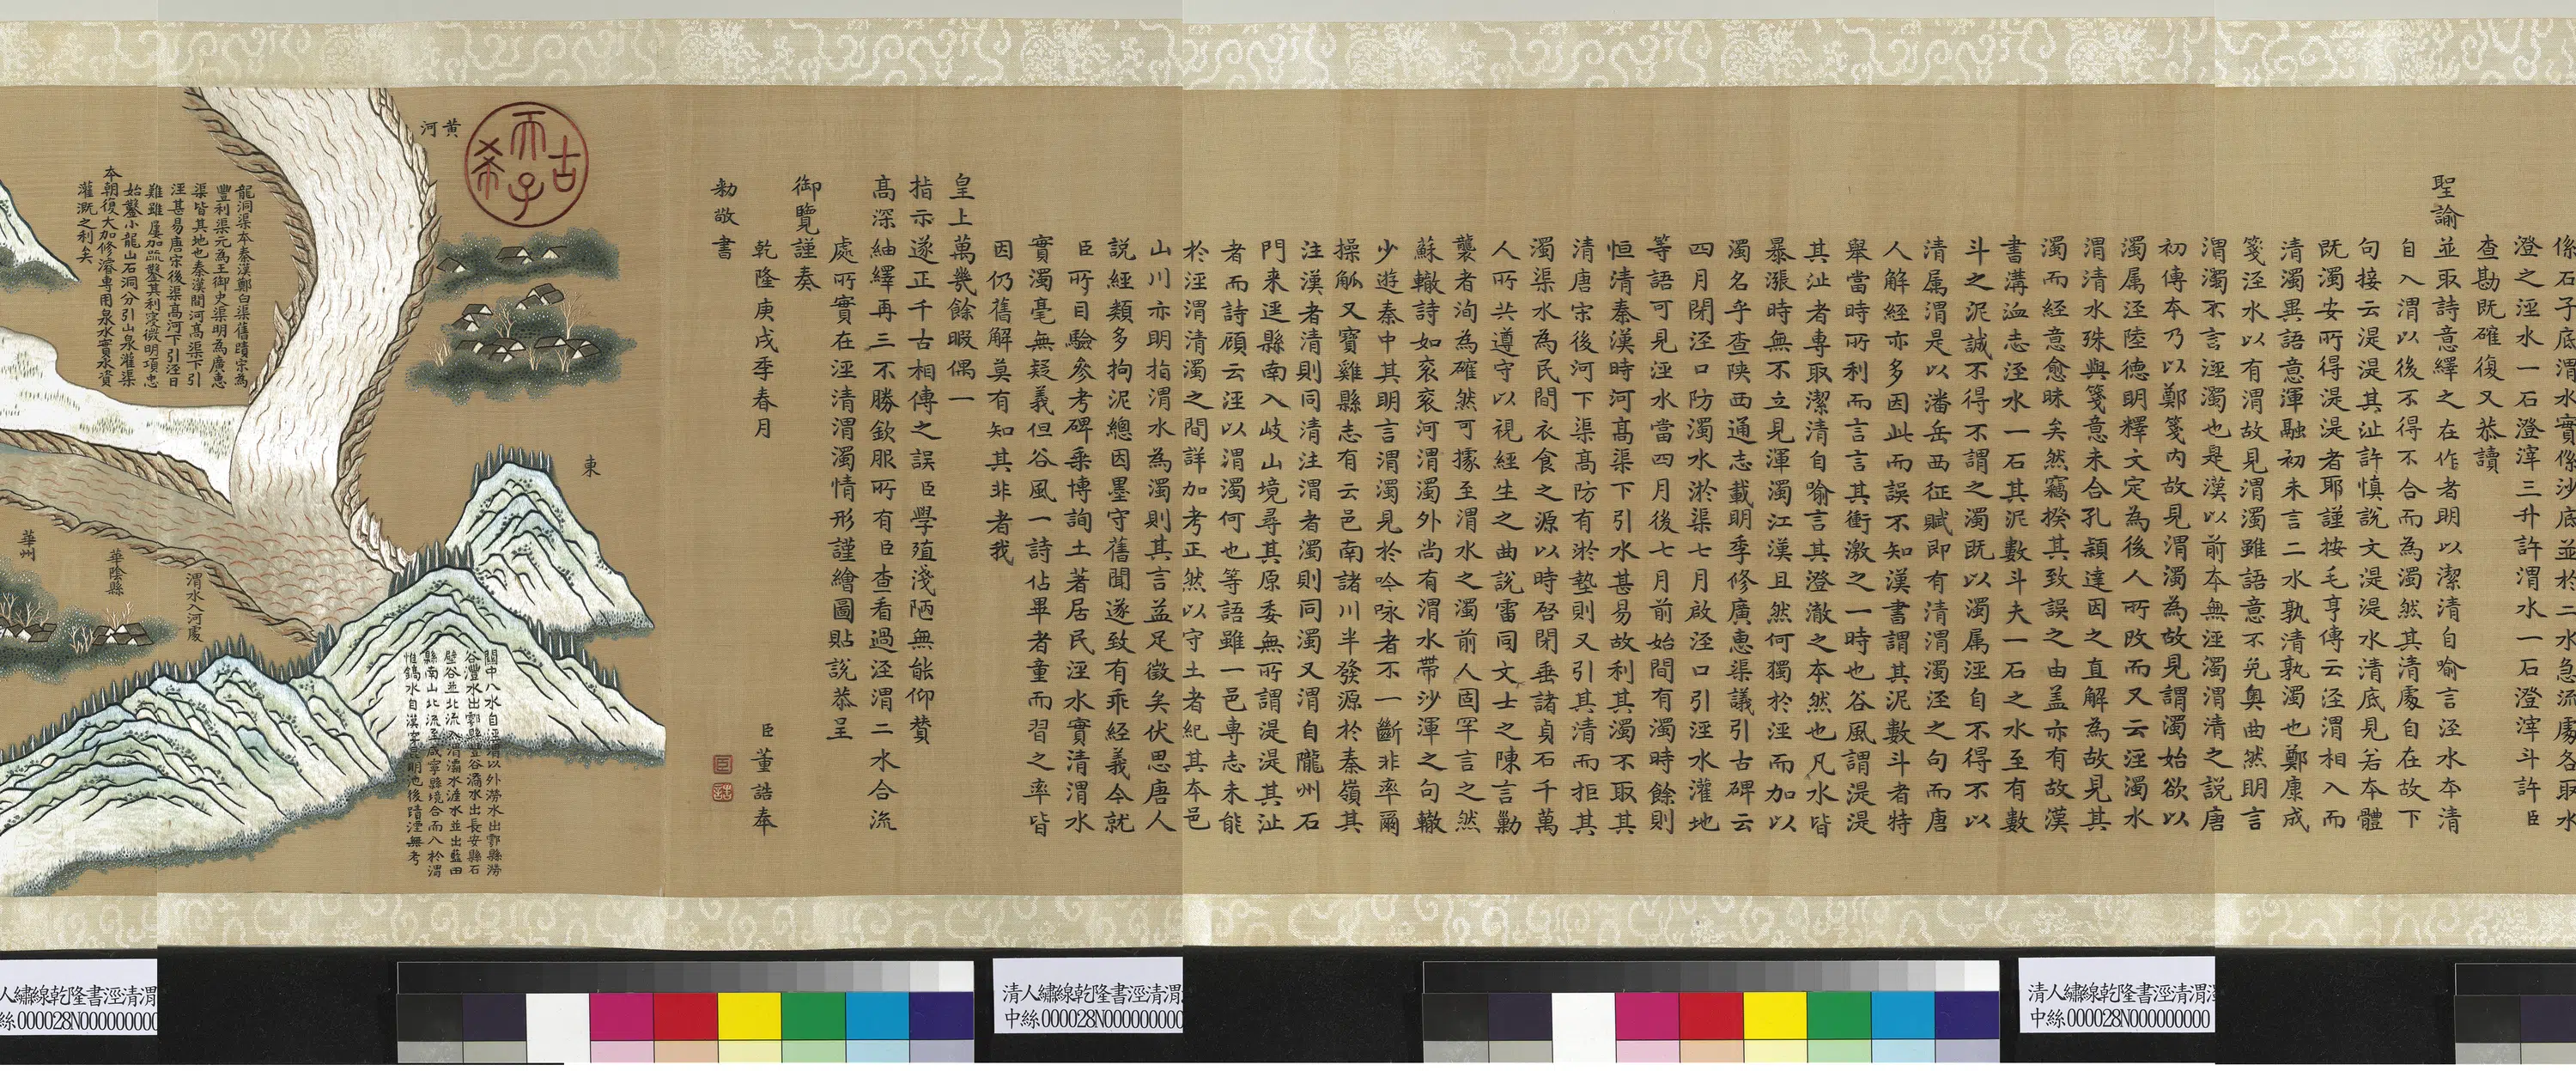 係石子底渭水實係沙底並於二水急流處各取水
澄之涇水一石澄滓三升許渭水一石澄滓斗許臣
查勘既確復又恭讀
聖諭並取詩意繹之在作者明以潔清自喻言涇水本清
自入渭以後不得不合而為濁然其清處自在故下
句接云湜湜其沚許慎說文湜湜水清底見若本體
既濁安所得湜湜者耶謹按毛亨傳云涇渭相入而
清濁異語意渾融初未言二水孰清孰濁也鄭康成
箋涇水以有渭故見渭濁雖語意不免奧曲然明言
渭濁不言涇濁也是漢以前本無涇濁渭清之說唐
初傳本乃以鄭箋內故見渭濁為故見謂濁始欲以
濁属涇陸德明釋文定為後人所改而又云涇濁水
渭清水殊與箋意未合孔穎達因之直解為故見其
濁而經意愈昧矣然竊揆其致誤之由盖亦有故漢
書溝洫志涇水一石其泥數斗夫一石之水至有數
斗之泥誠不得不謂之濁既以濁属涇自不得不以
清属渭是以潘岳西征賦即有清渭濁涇之句而唐
人解經亦多因此而誤不知漢書謂其泥數斗者特
舉當時所利而言言其衝激之一時也谷風謂湜湜
其沚者專取潔清自喻言其澄澈之本然也凡水皆
暴漲時無不立見渾濁江漢且然何獨於涇而加以
濁名乎查陝西通志載明季修廣惠渠議引古碑云
四月閉涇口防濁水淤渠七月啟涇口引涇水灌地
等語可見涇水當四月後七月前始間有濁時餘則
恒清秦漢時河髙渠下引水甚易故利其濁不取其
清唐宋後河下渠髙防有淤墊則又引其清而拒其
濁渠水為民間衣食之源以時啓閉垂諸貞石千萬
人所共遵守以視經生之曲說雷同文士之陳言勦
襲者洵為確然可據至渭水之濁前人固罕言之然
蘇轍詩如衮衮河渭濁外尚有渭水帶沙渾之句轍
少遊秦中其明言渭濁見於吟咏者不一斷非率爾
操觚又寶雞縣志有云邑南諸川半發源於秦嶺其
注漢者清則同清注渭者濁則同濁又渭自隴州石
門来逕縣南入岐山境尋其原委無所謂湜湜其沚
者而詩顧云涇以渭濁何也等語雖一邑專志未能
於涇渭清濁之間詳加考正然以守土者紀其本邑
山川亦明指渭水為濁則其言益足徵矣伏思唐人
説經類多拘泥總因墨守舊聞遂致有乖經義今就
臣所目驗叅考碑乗博詢土著居民涇水實清渭水
實濁毫無疑義但谷風一詩佔畢者童而習之率皆
因仍舊解莫有知其非者我
皇上萬幾餘暇偶一
指示遂正千古相傳之誤臣學殖淺陋無能仰贊
髙深紬繹再三不勝欽服所有臣查看過涇渭二水合流
處所實在涇清渭濁情形謹繪圖貼說恭呈
御覽謹奏
乾隆庚戌季春月 臣董誥奉
勑敬書
古稀天子
黄河
東
關中八水自涇渭以外澇水出鄠縣澇
谷灃水出鄠縣豐谷潏水出長安縣石
壁谷並北流入渭灞水滻水並出藍田
縣南山北流至咸寧縣境合而入於渭
惟鎬水自漢穿昆明池後蹟湮無考
龍洞渠本秦漢鄭白渠舊蹟宋為
豐利渠元為王御史渠明為廣惠
渠皆其地也秦漢間河高渠下引
涇甚易唐宋後渠高河下引涇日
難雖屢加疏鑿其利寖微明項忠
始鑿小龍山石洞分引山泉灌渠
本朝復大加修濬專用泉水實永資
灌溉之利矣
渭水入河處
華陰縣
華州
清人繡線乾隆書涇清渭
中絲000028N000000000
清人繡線乾隆書涇清渭
中絲000028N000000000
人繡線乾隆書涇清渭
絲000028N000000000